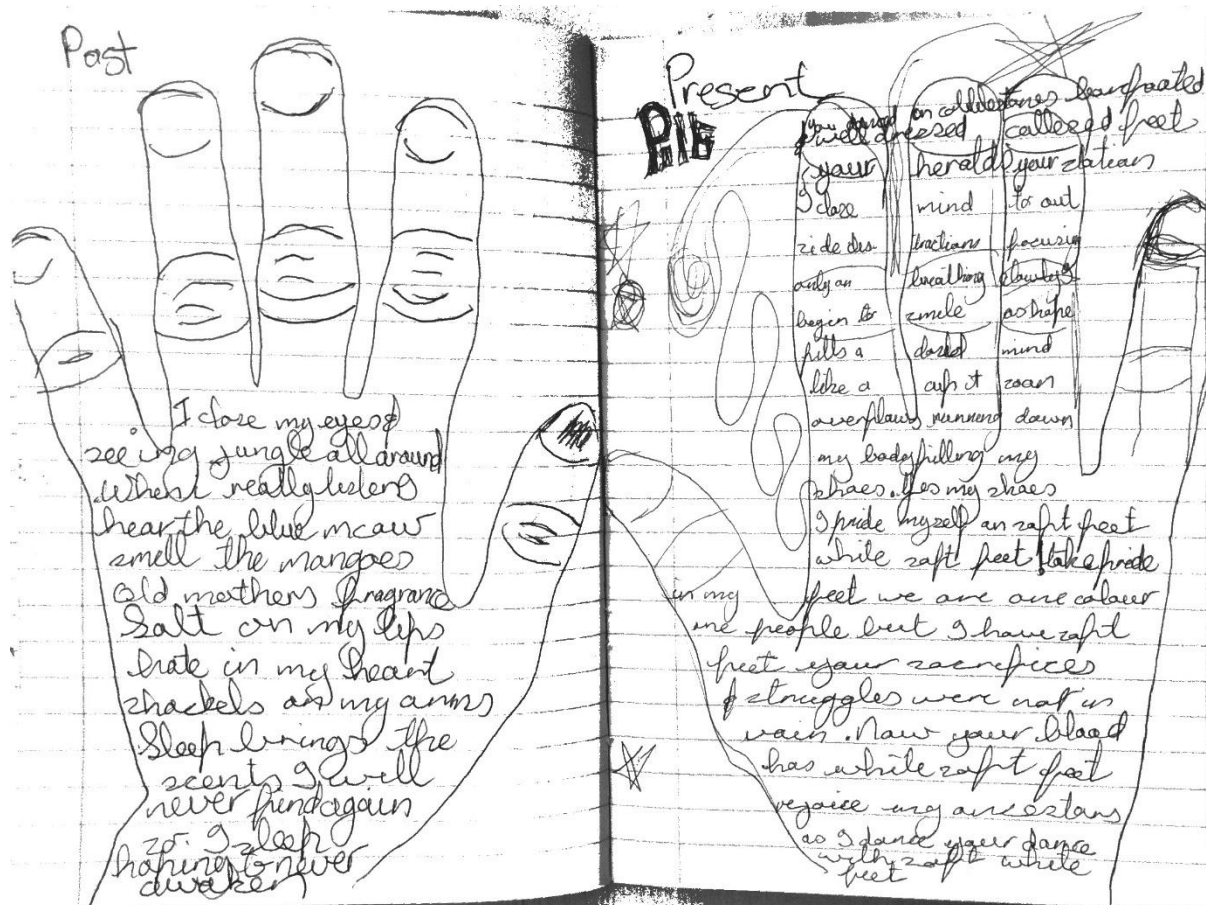 Past
I close my eyes &
seeing jungle all around
When I really listen &
hear the blue mcaw
smell the mangoes
old mothers fragrance
Salt on my lips
hate in my heart
shackels on my arms
Sleep brings the
scents I will
never find again
so I sleep
hoping to never
awaken
Present
you danced on cobblestones barefooted
& well dressed callezed feet
your herald your station
I close mind to out
side dis- tractions focusing
only on breathing slowly I
begin to smile as hope
fills a dazed mind
like a cup it soon
overflows running down
my body filling my
shoes. Yes my shoes
I pride myself on soft feet
white soft feet I take pride
in my feet we are one colour
one people but I have soft
feet your sacrefices
& struggles were not in
vain. Now your blood
has white soft feet
rejoice my ancestors
as I dance your dance
with soft white
feet